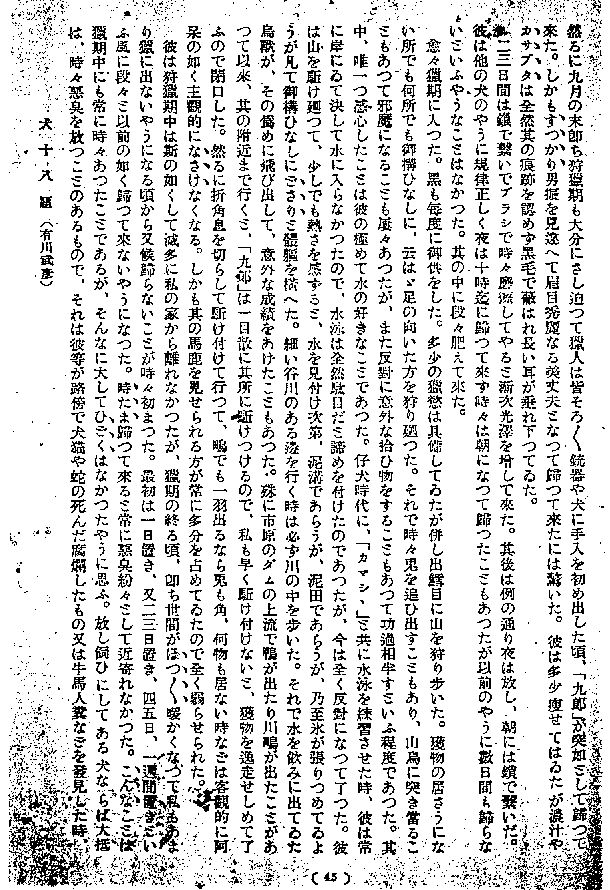 然るに九月の末卽ち狩獵期も大分にさし迫つて獵人は皆そろ〱銃器や犬に手入を初め出した頃、「九郞」が突如として歸つて
來た。しかもすつかり男振を見違へて眉目秀麗なる美丈夫となつて歸つて來たには驚いた。彼は多少瘦せてはゐたが濃汁や
カサブタは全然其の痕跡を認めず黑毛で蔽はれ長い耳が垂れ下つてゐた。
二三日間は鎖で繫いでブラシで時々磨擦してやると漸次光澤を增して來た。其後は例の通り夜は放し、朝には鎖で繫いだ。
彼は他の犬のやうに規律正しく夜は十時迄に歸つて來ず時々は朝になつて歸つたこともあつたが以前のやうに數日間も歸らな
いといふやうなことはなかつた。其の中に段々肥えて來た。
愈々獵期に入つた。黑も每度に御供をした。多少の獵慾は具備してゐたが併し出鱈目に山を狩り步いた。獲物の居さうにな
い所でも何所でも御構ひなしに、云はゞ足の向いた方を狩り廻つた。それで時々兎を追ひ出すこともあり、山鳥に突き當るこ
ともあつて邪魔になることも屢々あつたが、また反對に意外な拾ひ物をすることもあつて功過相半すといふ程度であつた。其
中、唯一つ感心したことは彼の極めて水の好きなことであつた。仔犬時代に、「カマシ」と共に水泳を練習させた時、彼は常
に岸にゐて決して水に入らなかつたので、水泳は全然駄目だと諦めを付けたのであつたが、今は全く反對になつて了つた。彼
は山を駈け廻つて、少しでも熱さを感ずると、水を見付け次第、泥溝であらうが、泥田であらうが、乃至氷が張りつめてるよ
うが凡て御構ひなしにどさりと體軀を橫へた。細い谷川のある澤を行く時は必ず川の中を步いた。それで水を飮みに出てゐた
鳥獸が、その爲めに飛び出して、意外な成績をあげたこともあつた。殊に市原のダムの上流で鴨が出たり川鴫が出たことがあ
つて以來、其の附近まで行くと、「九郞」は一目散に其所に駈けつけるので、私も早く駈け付けないと、獲物を逸走せしめて了
ふので閉口した。然るに折角息を切らして駈け付けて行つて、鴫でも一羽出るなら兎も角、何物も居ない時などは客觀的に阿
呆の如く主觀的になさけなくなる。しかも其の馬鹿を見せられる方が常に多分を占めてゐたので全く弱らせられた。
彼は狩獵期中は斯の如くして滅多に私の家から離れなかつたが、獵期の終る頃、卽ち世間がほつ〱暖かくなつて私もあま
り獵に出ないやうになる頃から又候歸らないことが時々初まつた。最初は一日置き、又二三日置き、四五日、一週間置きとい
ふ風に段々と以前の如く歸つて來ないやうになつた。時たま歸つて來ると常に惡臭紛々として近寄れなかつた。こんなことは
獵期中にも常に時々あつたことであるが、そんなに大してひどくはなかつたやうに思ふ。放し飼ひにしてある犬ならば大抵
は、時々惡臭を放つことのあるもので、それは彼等が路傍で犬猫や蛇の死んだ腐爛したもの又は牛馬人糞などを發見した時、
犬十八題（有川武彥）
(45)